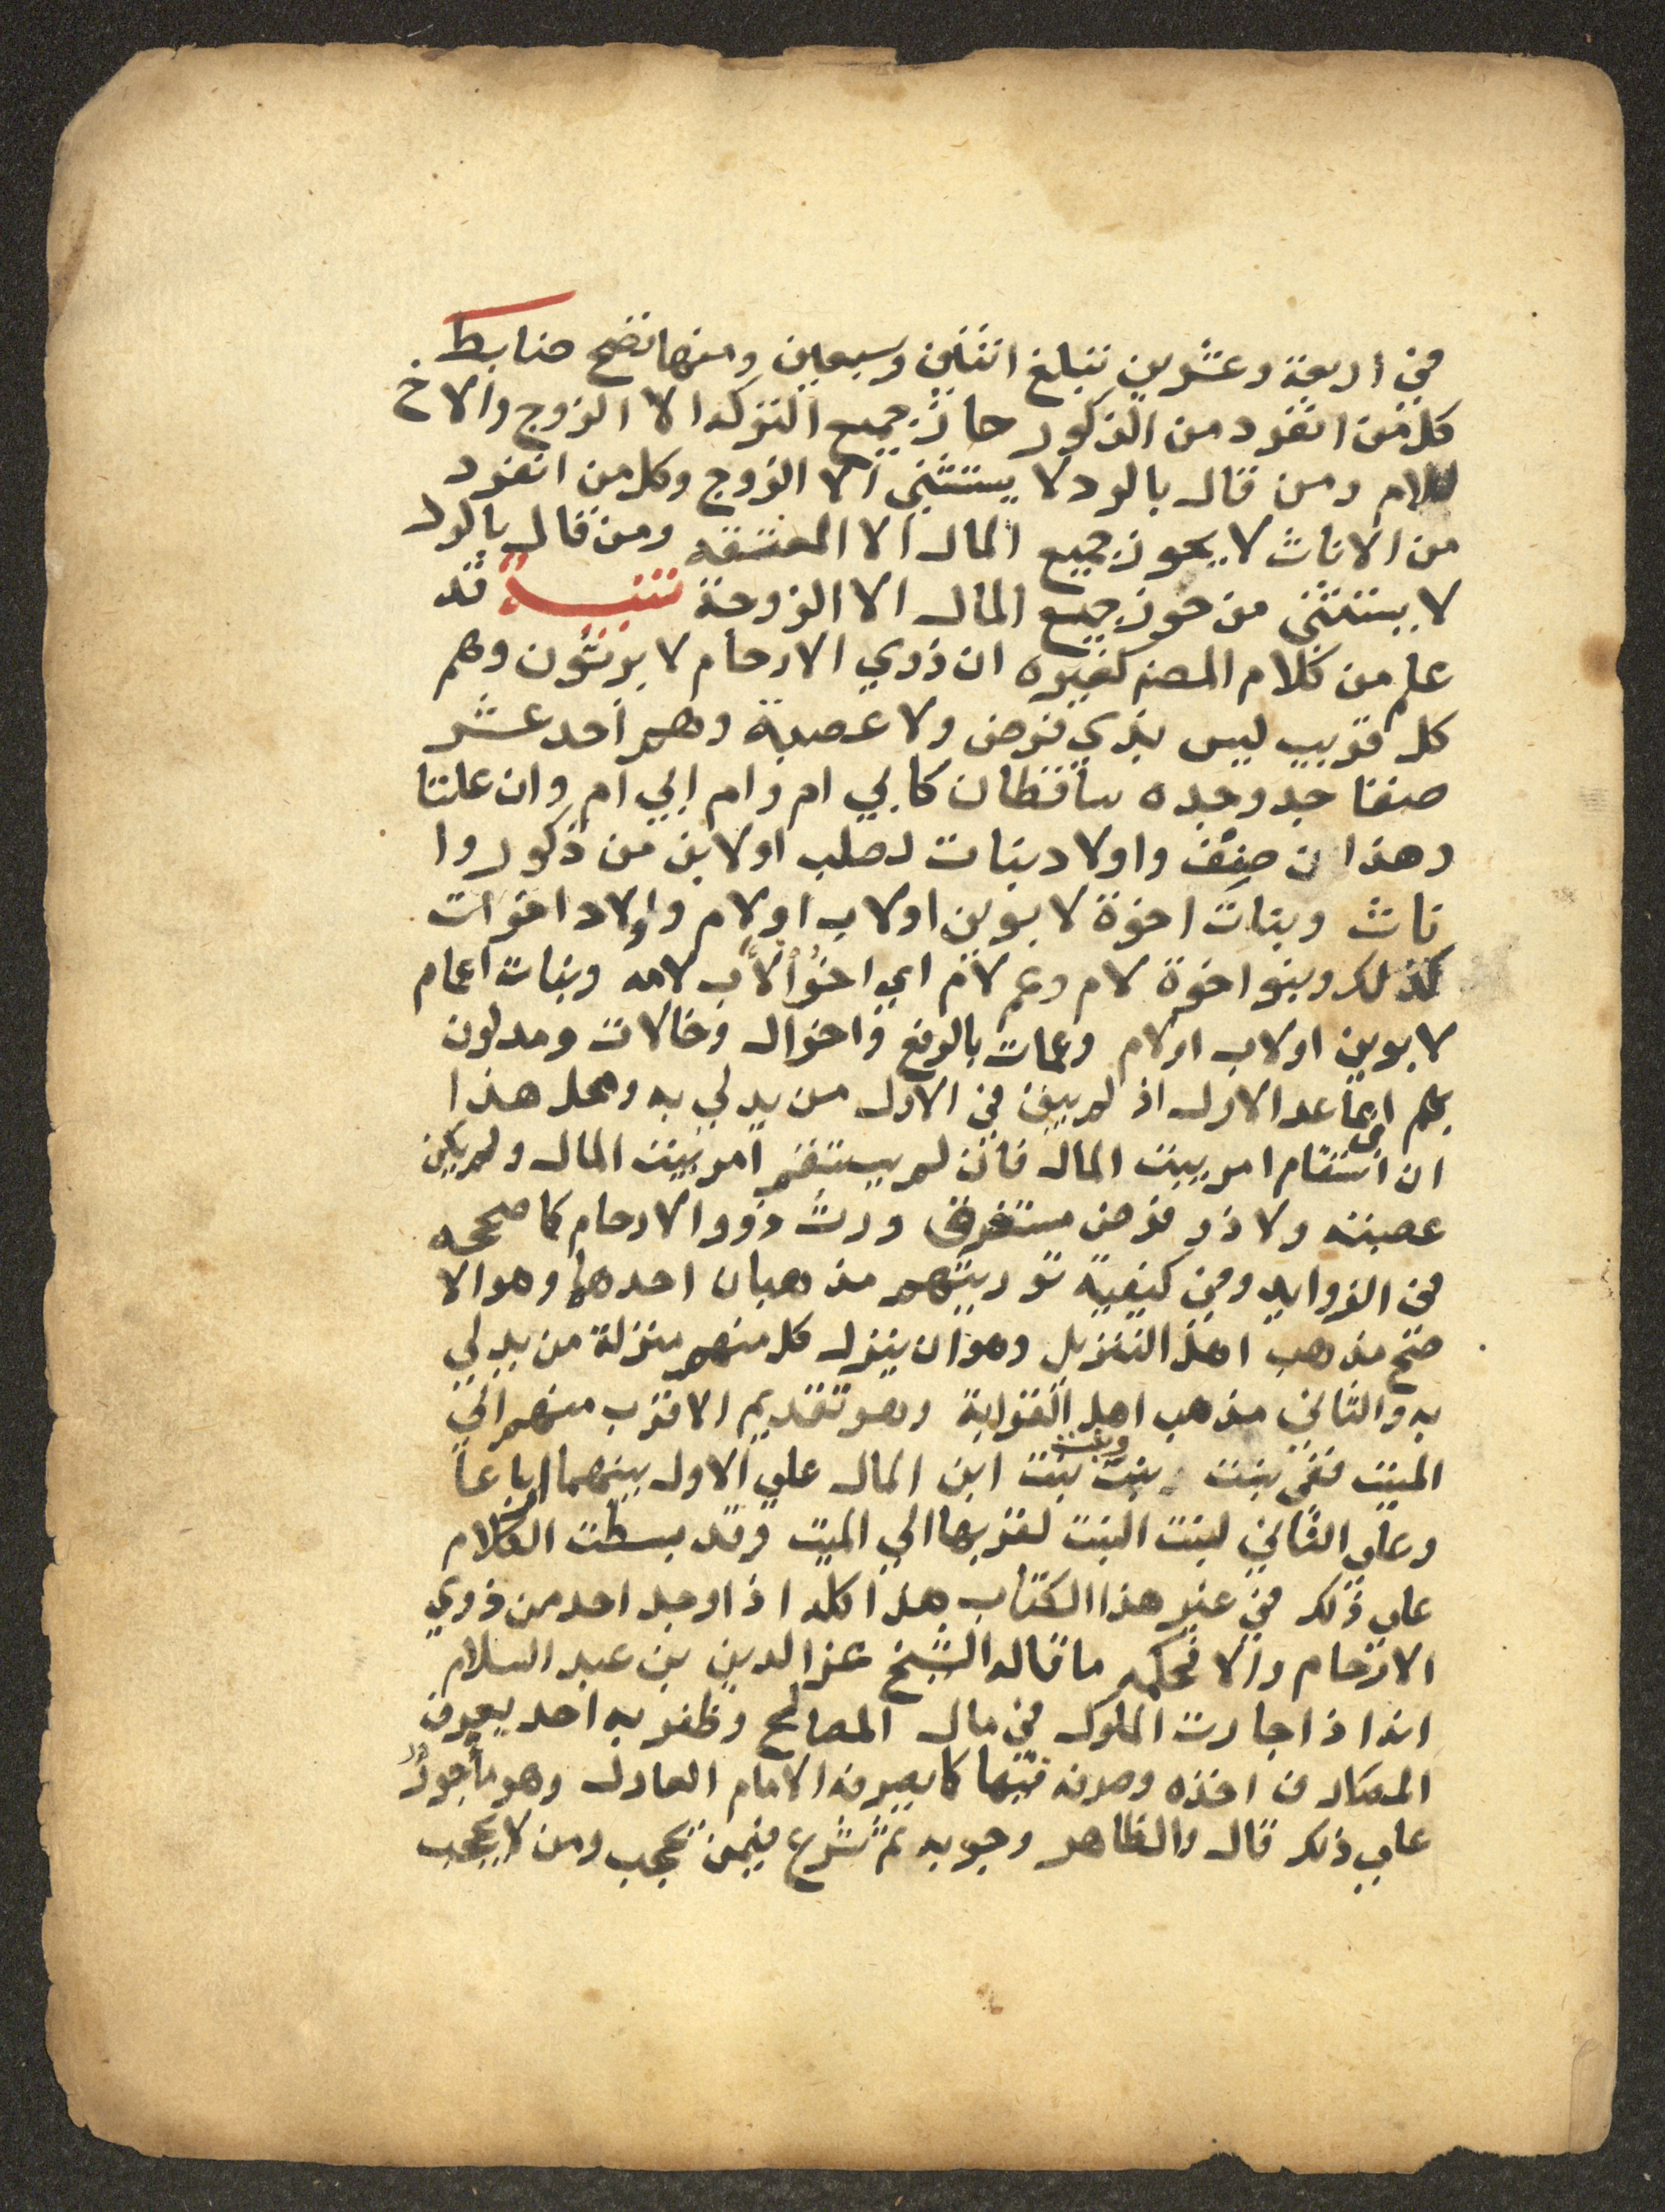 في اربعة وعشرين تبلغ اثنين وسبعين ومنها تصح ضابط
كل من انفرد من الذكور حاز جميع التركة الا الزوج والاخ
للام ومن قال بالرد لا يستثني الا الزوج وكل من انفرد
من الاناث لا يحوز جميع المال الا المعتقه ومن قال بالرد
لا يستثني من حوز جميع المال الا الزوجة تنبيه قد
علم من كلام المصنف كغيره ان ذوي الارحام لا يرثون وهم
كل قريب ليس بذي فرض ولا عصبة وهم احد عشر
صنفا جد وجده ساقطان كابي ام وام ابي ام وان علتا
وهذان صنف واولاد بنات لصلب اولابن من ذكور وا
ناث وبنات اخوة لابوين اولاب اولام واولاد اخوات
كذلك وبنو اخوة لام وعم لام اي اخو الاب لامه وبنات اعمام
لابوين اولاب اولام وعمات بالرفع واخوال وخالات ومدلون
بهم اي ماعدا الاول اذ لم يبق في الاول من يدلي به ومحل هذا
ان استقام امر بيت المال فان لم يستقم امر بيت المال ولم يكن
عصبته ولا ذو فرض مستغرق ورث ذوو الارحام كما صححه
في الزوايد وفي كيفية توريثهم مذهبان احدهما وهو الا
صح مذهب اهل التنزيل وهو ان ينزل كل منهم منزلة من يدلي
به والثاني مذهب اهل القرابة وهو تقديم الاقرب منهم الي
الميت ففي بنت بنت وبنت بنت ابن المال علي الاول بينهما ارباعا
وعلي الثاني لبنت البنت لقربها الي الميت وقد بسطت الكلام
علي ذلك في غير هذا الكتاب هذا كله اذا وجد احد من ذوي
الارحام والا فحكمه ما قاله الشيخ عز الدين بن عبد السلام
انه اذا جارت الملوك في مال المصالح وظفر به احد يعرف
المصارف اخذه وصرفه فيها كما يصرفه الامام العادل وهو مأجورٌ
علي ذلك قال والظاهر وجوبه ثم شرع فيمن يحجب ومن لا يحجب